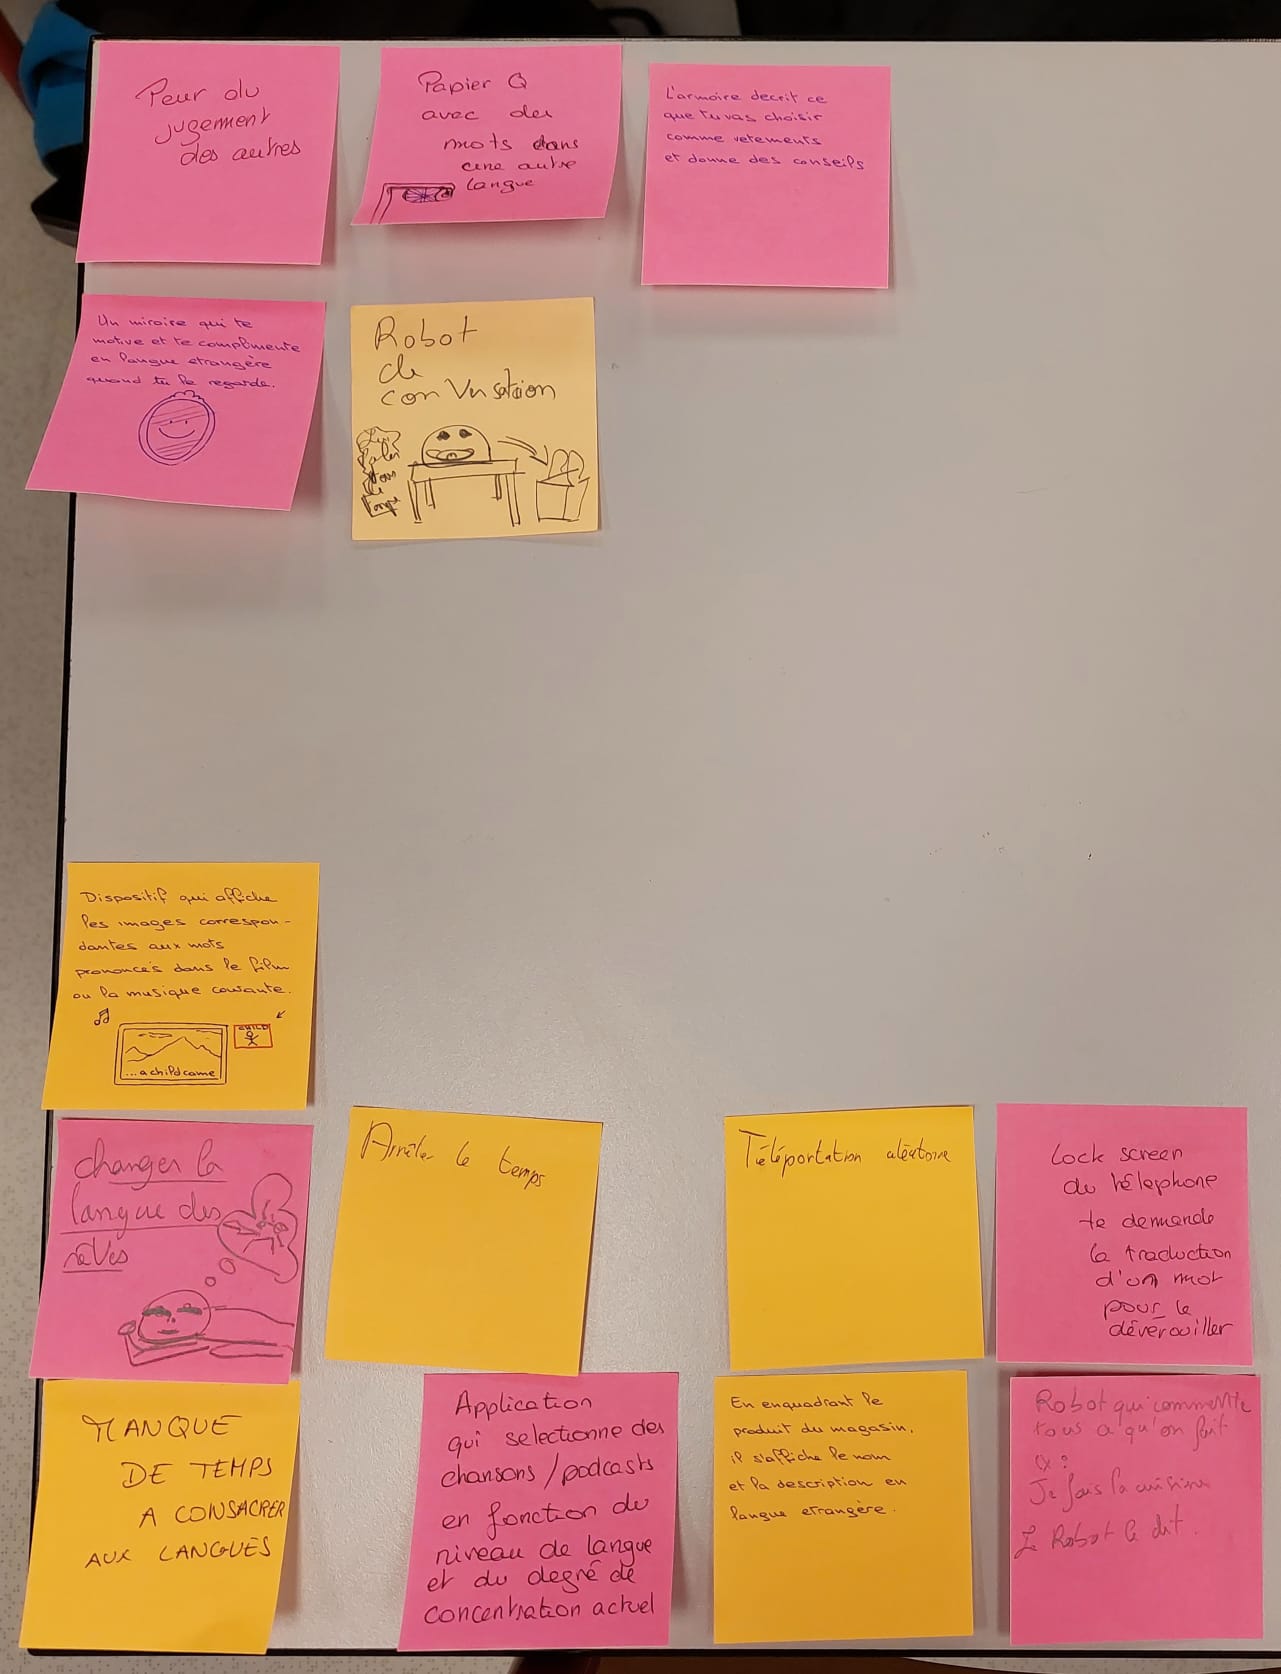 Peur du
jugement
des autres
Papier Q
avec des
mots dans
une autre
langue
L'armoire decrit ce
que tu vas choisir
comme vetements
et donne des conseils
Un miroire qui te
motive et te complimente
en langue etrangère
quand tu le regarde.
Robot
de
conversation
Dispositif qui affiche
les images correspon-
dantes aux mots
prononcés dans le film
ou la musique courante.
CHILD
...a child came
changer la
langue des
rêves
Arrêter le temps
Téléportation aléatoire
Lock screen
du télephone
te demande
la traduction
d'un mot
pour le
dévérouiller
MANQUE
DE TEMPS
A CONSACRER
AUX LANGUES
Application
qui selectionne des
chansons/podcasts
en fonction du
niveau de langue
et du degré de
concentration actuel
En enquadrant le
produit du magasin,
il s'affiche le nom
et la description en
langue etrangère.
Robot qui commente
tous ce qu'on fait
ex:
Je fais la cuisine
Le Robot le dit.